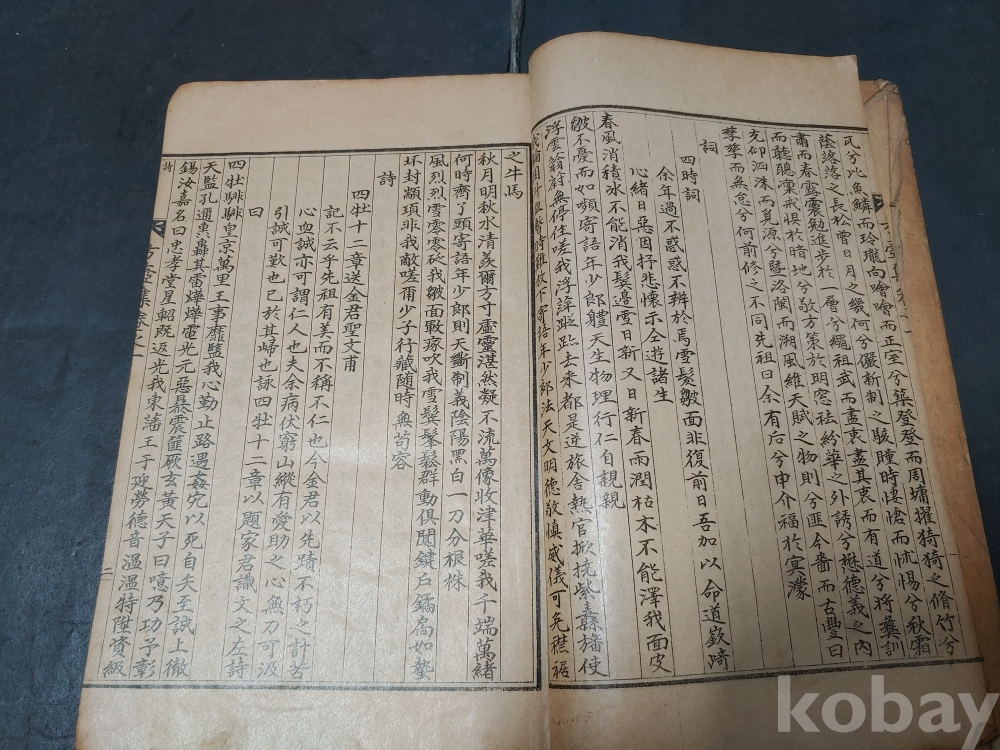 瓦兮比魚鱗而玲瓏向噲噲而正室兮築登登而周墉擢猗猗之脩竹兮
蔭落落之長松曾日月之幾何兮儼新制之駭瞳時悽愴而怵惕兮秋霜
肅而春露震勉進步於一層兮繩祖武而盡衷盡其衷而有道兮將彝訓
而聽聰凜戒惧於暗地兮敬方策於明窓祛紛華之外誘兮懋德義之內
充仰泗洙而覓源兮曁洛閩而溯風維天賦之物則兮匪今嗇而古豐曰
孳孳而無怠兮何前修之不同先祖曰余有后兮申介福於冥濛
詞
四時詞
余年過不惑惑不辨於焉雪髮皺面非復前日吾加以命道嶔崎
心緒日惡因抒悲懷示仝遊諸生
春風消積氷不能消我髮邊雪日新又日新春雨潤枯木不能澤我面皮
皺不憂而如嚬寄語年少郎軆天生物理行仁自親親
浮雲蓊蔚無停住嗟我浮諱跐跐去來都是逆旅舍熱官掀抗紫纛旛使
我 寄語年少郎法天文明德敬愼威儀可免襟裾
之牛馬
秋月明秋水清羡爾方寸虛靈湛然凝不流萬像收津華嗟我千端萬緖
何時齊了頭寄語年少郎則天斷制義陰陽黑白一刀分根株
風烈烈雪雰雰砭我皺面戰瘃吹我雪鬂鬇鬆群動俱閒鍵戶鐍扃如蟄
坏封顓頊非我敵嗟爾少子行藏隨時無苟容
詩
四牡十二章送金君聖文甫
記不云乎先祖有美而不稱不仁也今金君以先蹟不朽之計苦
心血誠亦可謂仁人也夫余病伏窮山縱有愛助之心無力可汲
引誠可歎也已於其歸也詠四牡十二章以題家君識文之左詩
曰
四牡騑騑皇京萬里王事靡盬我心勤止路遇姦宄以死自矢至誠上徹
天監孔邇 轟其雷燁燁電光元惡暴震篚厥玄黃天子曰噫乃功予彰
錫汝嘉名曰忠孝堂星軺旣返光我東藩王于 勞德音溫溫特陞資級
詩
集卷之一
二
kobay